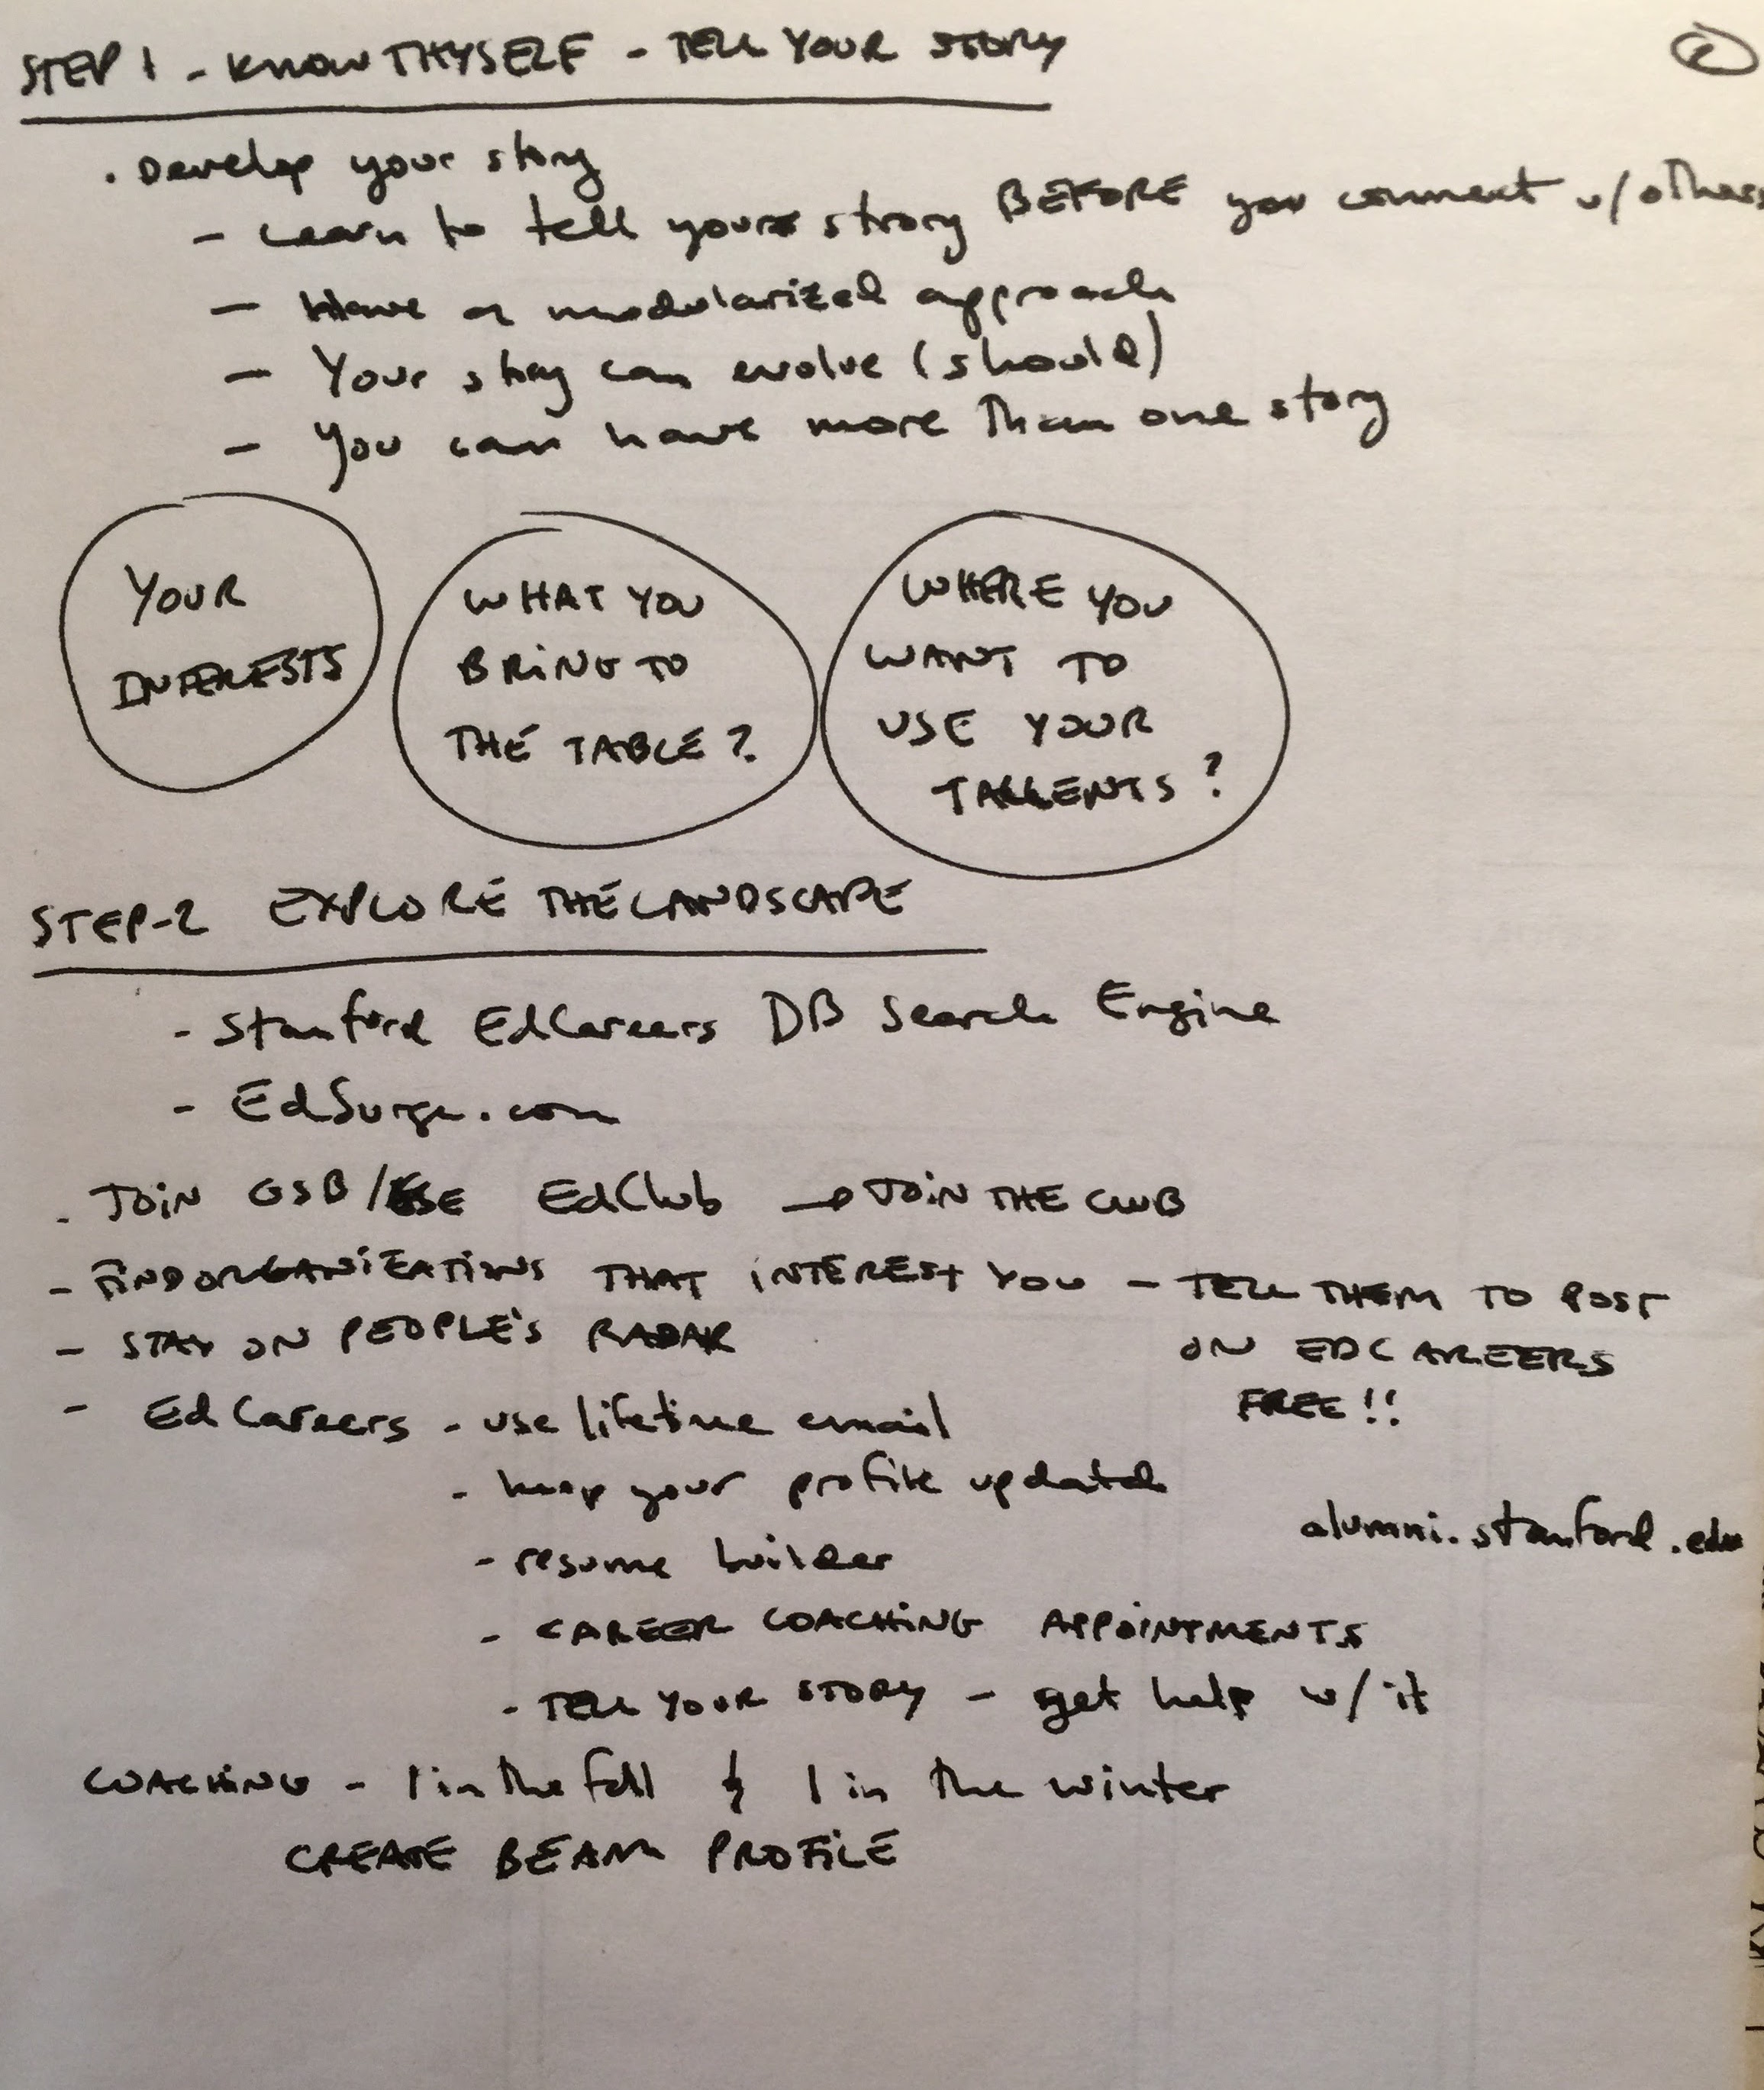 STEP 1 - KNOW THYSELF - TELL YOUR STORY
2
. Develop your story
- Learn to tell your story BEFORE you connect w/ others
- Have a modularized approach
- Your story can evolve (should)
- You can have more than one story
YOUR
INTERESTS
WHAT YOU
BRING TO
THE TABLE?
WHERE YOU
WANT TO
USE YOUR
TALLENTS?
STEP-2 EXPLORE THE LANDSCAPE
- Stanford EdCareers DB Search Engine
- EdSurge.com
- JOIN GSB/GSE EdClub → JOIN THE CLUB
- FIND ORGANIZATIONS THAT INTEREST YOU - TELL THEM TO POST
ON EDCAREERS
FREE!!
- STAY ON PEOPLE'S RADAR
- EdCareers - use lifetime email
- keep your profile updated
alumni.stanford.edu
- resume builder
- CAREER COACHING APPOINTMENTS
- TELL YOUR STORY - get help w/ it
COACHING - 1 in the fall & 1 in the winter
CREATE BEAM PROFILE